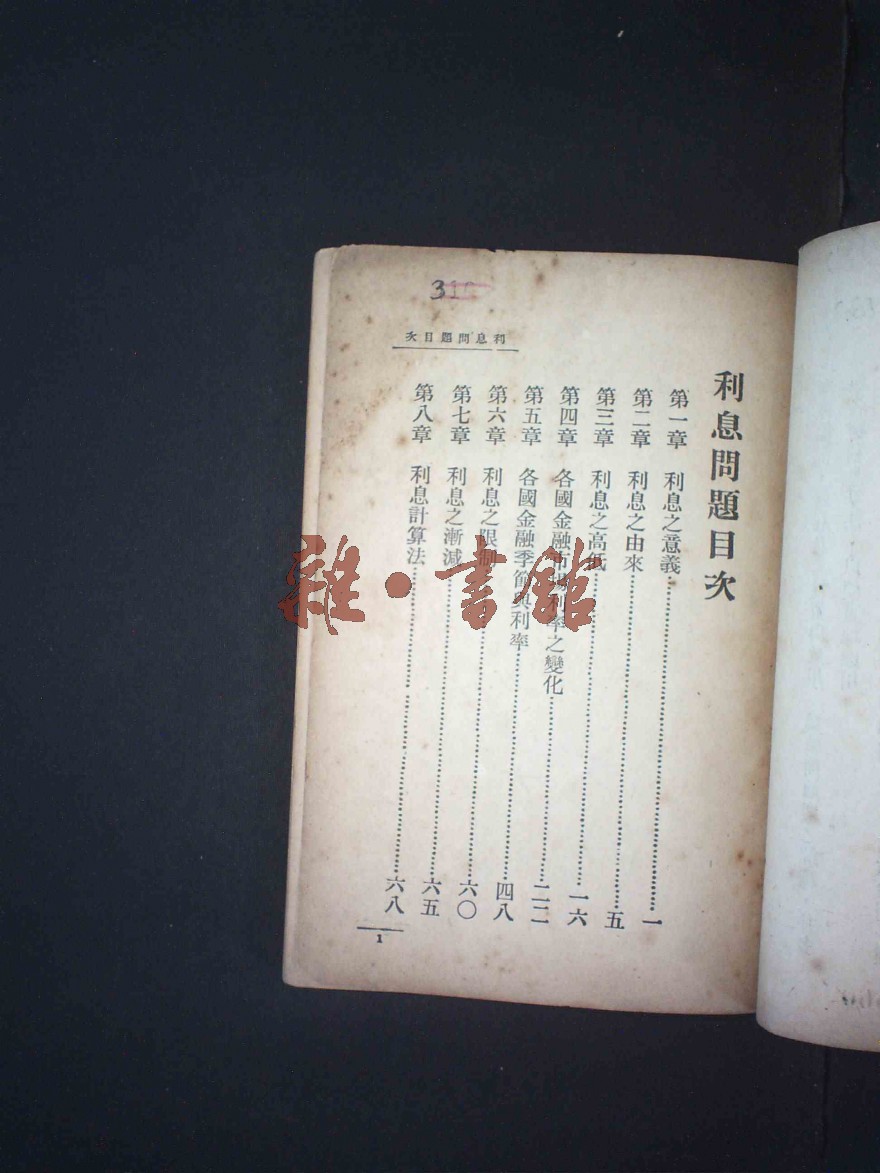 利息問題目次
第一章 利息之意義……一
第二章 利息之由來……五
第三章 利息之高低……一六
第四章 各國金融市場利率之變化……二二
第五章 各國金融季節與利率……四八
第六章 利息之限制……六〇
第七章 利息之漸減……六五
第八章 利息計算法……六八
利息問題目次
1
雜·書館